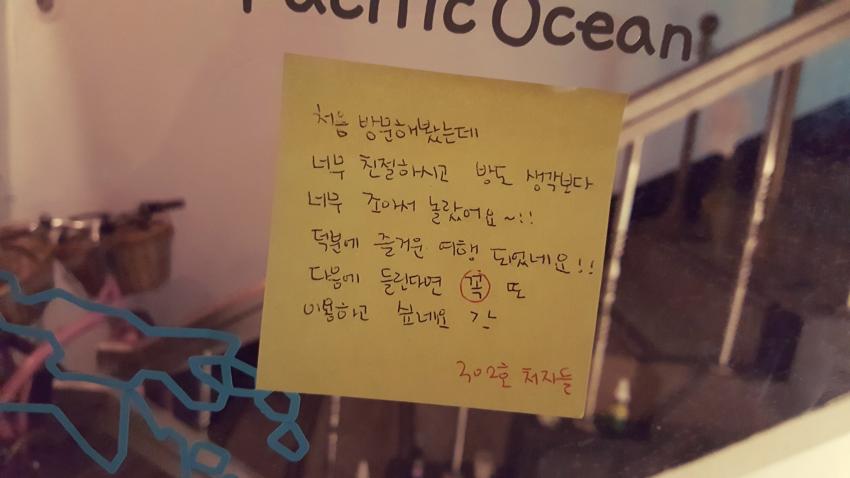 Pacific Ocean
처음 방문해봤는데
너무 친절하시고 방도 생각보다
너무 조아서 놀랐어요~!!
덕분에 즐거운 여행 되었네요!!
다음에 들린다면 꼭 또
이용하고 싶네요 ㅋ
302호 처자들